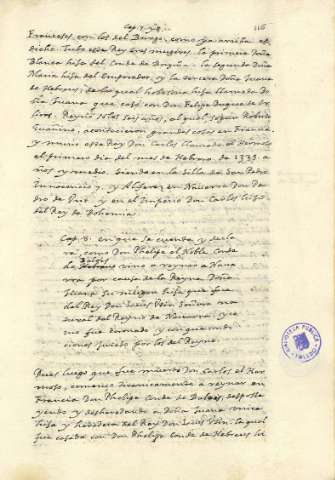 Cap. 7. y 8. 116
franceses con los del Burgo, como ya arriba es
dicho. Tubo este Rey tres mugeres, la primera Doña
Blanca hija del Conde de Borgoña. la segunda Doña
Maria hija del Emperador, y la tercera Doña Juana
de Hebreus; de la qual hobo una hija llamada Do
ña Juana que casó con Don Felipe Duque de
Reynó este Rey seis años, al qual, segun Roberto
Guaino, acontecieron grandes cosas en Francia,
y murio este Rey Don Carlos llamado el Hermoso
el primero dia del mes de Hebrero, de 1333 a
ños y medio, siendo en la silla de San Pedro
Innocencio y Alferez en Navarra Don
dro de y en el Imperio Don Carlos hijo
del Rey de Bohemia.
Cap. 8. en que se cuenta y decla
ra, como Don Phelipe el Noble Conde
de vino a reynar a Nava
rra por causa de la Reyna Doña
Juana su muger hija que fue
del Rey Don Luis Utin Señora na
tural del Reyno de Navarra. Y co
mo fue coronado y con que con
diciones jurado por los del Reyno.
Pues luego que fue muerto Don Carlos el Her
moso, comenzó tiranicamente a reynar en
Francia Don Phelipe Conde de despose
yendo y desheredando a Doña Juana unica
hija y heredera del Rey Don Luis Utin. la qual
fue casada con Don Phelipe Conde de Hebreus hi
BIBLIOTECA PUBLICA
TOLEDO